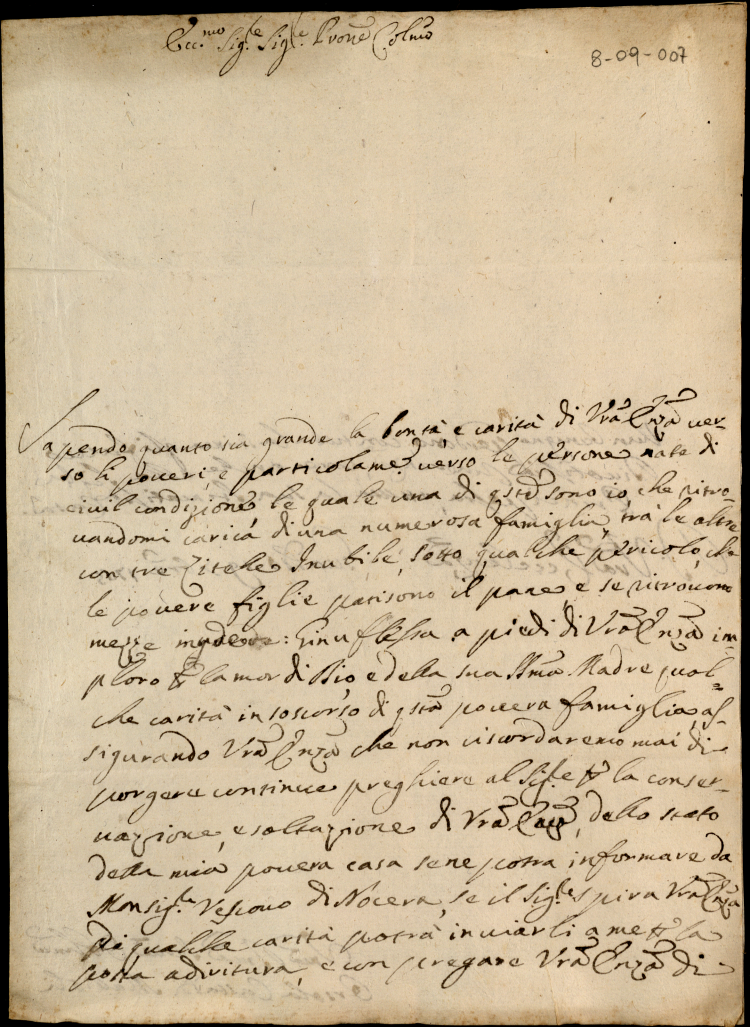 Ecc.mo Sig.re Sig.re Prone Colmo
8-09-007
Sapendo quanto sia grande la bontà, e carità di Vrã Enzã ver-
so li poueri, e particolamẽ. uerso le persone nate di
ciuil condizione, le quale una di qste sono io, che ritro-
uandomi carica di una numerosa famiglia, trà le altre
con tre Zitelle Inubile, sotto qualche pericolo, che
le pouere figlie patisono il pane e se ritrouono
mezze : Ginuflessa a piedi di Vrã Enzã im-
ploro p lamor di Dio e della sua SSma Madre qual-
che carità in soscorso di qsta pouera famiglia, as-
sigurando Vrã Enzã che non ci scordaremo mai di
porgere continue preghiere al Sig.re p la conser-
uazione, esaltazione di Vrã Enzã, dello stato
della mia pouera casa sene potra informare da
Monsig.re Vescouo di Nocera, se il Sig.re spira Vrã Enzã
di qualche carità potrà inuiarli a me p la
posta adiritura, e con pregare Vrã Enzã di